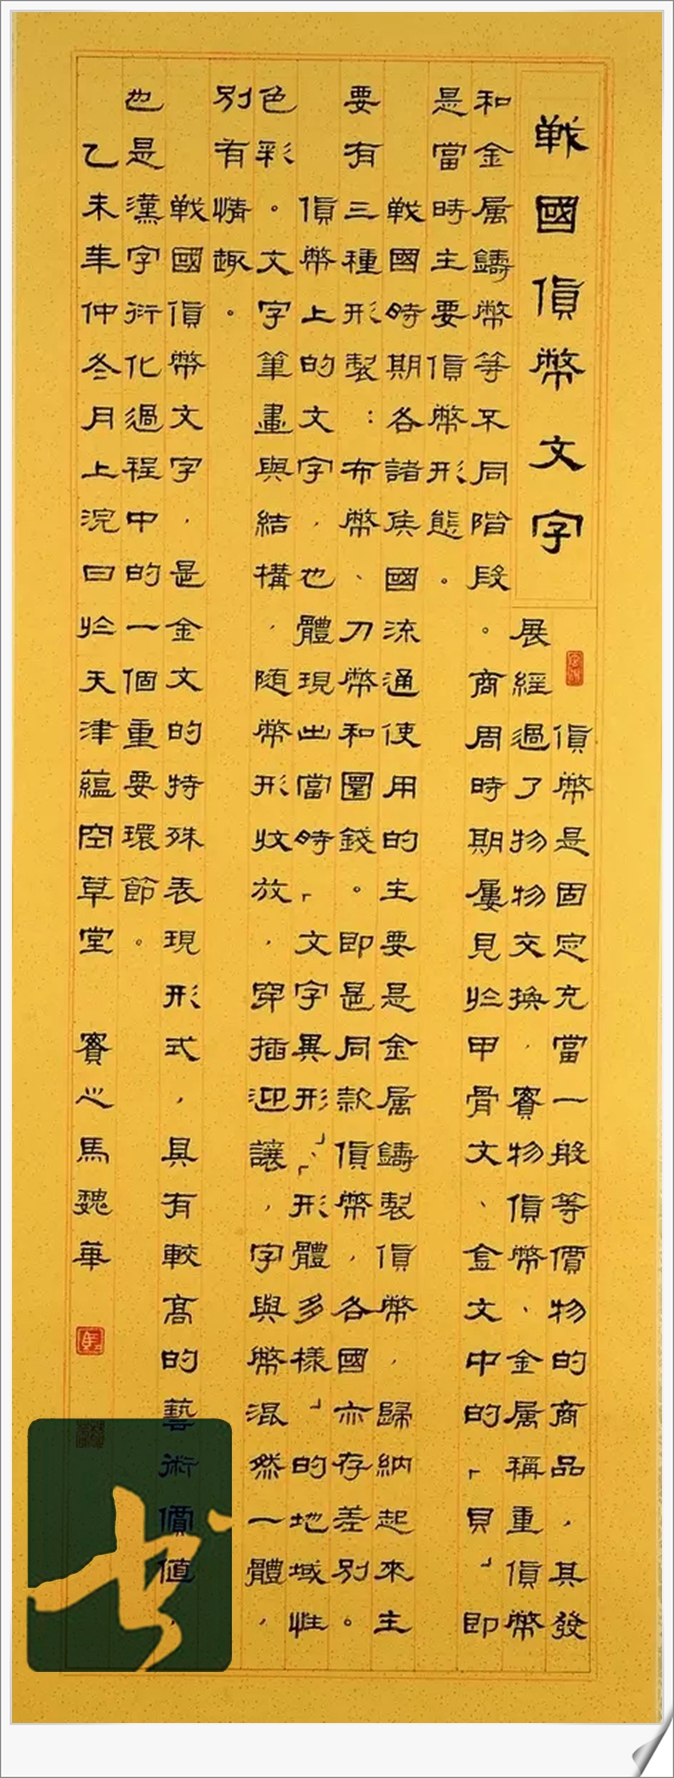 戰國貨幣文字
貨幣是固定充當一般等價物的商品，其發
展經過了物物交換，實物貨幣、金属稱重貨幣
和金属鑄幣等不同階段。商周時期屢見於甲骨文、金文中的「貝」即
是當時主要貨幣形態。
戰國時期各諸侯國流通使用的主要是金属鑄製貨幣，歸納起來主
要有三種形製：布幣、刀幣和圜錢。即是同款貨幣，各國亦存差別。
貨幣上的文字，也體現出當時「文字異形」、「形體多樣」的地域性
色彩。文字筆畫與結構，随幣形收放，穿插迎讓，字與幣混然一體，
別有情趣。
戰國貨幣文字，是金文的特殊表現形式，具有較高的藝術價值，
也是漢字衍化過程中的一個重要環節。
乙未年仲冬月上浣日於天津蘊空草堂 馬魏華
书